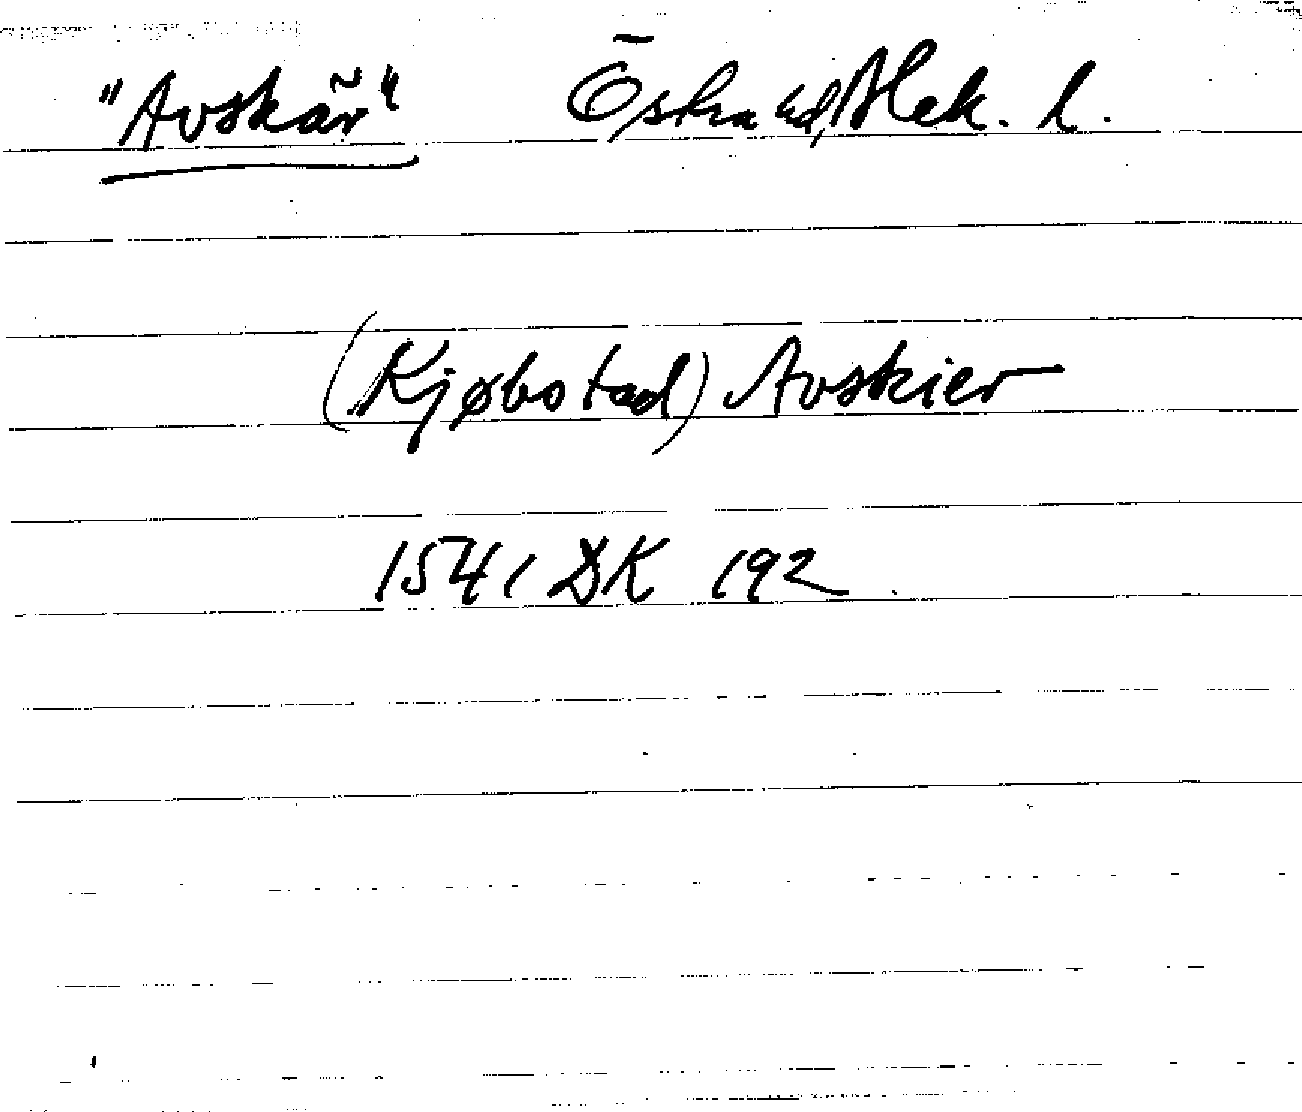 "Avskär" Östra hd, Blek. l.
(Kjøbstad) Avskier
1541 DK 192